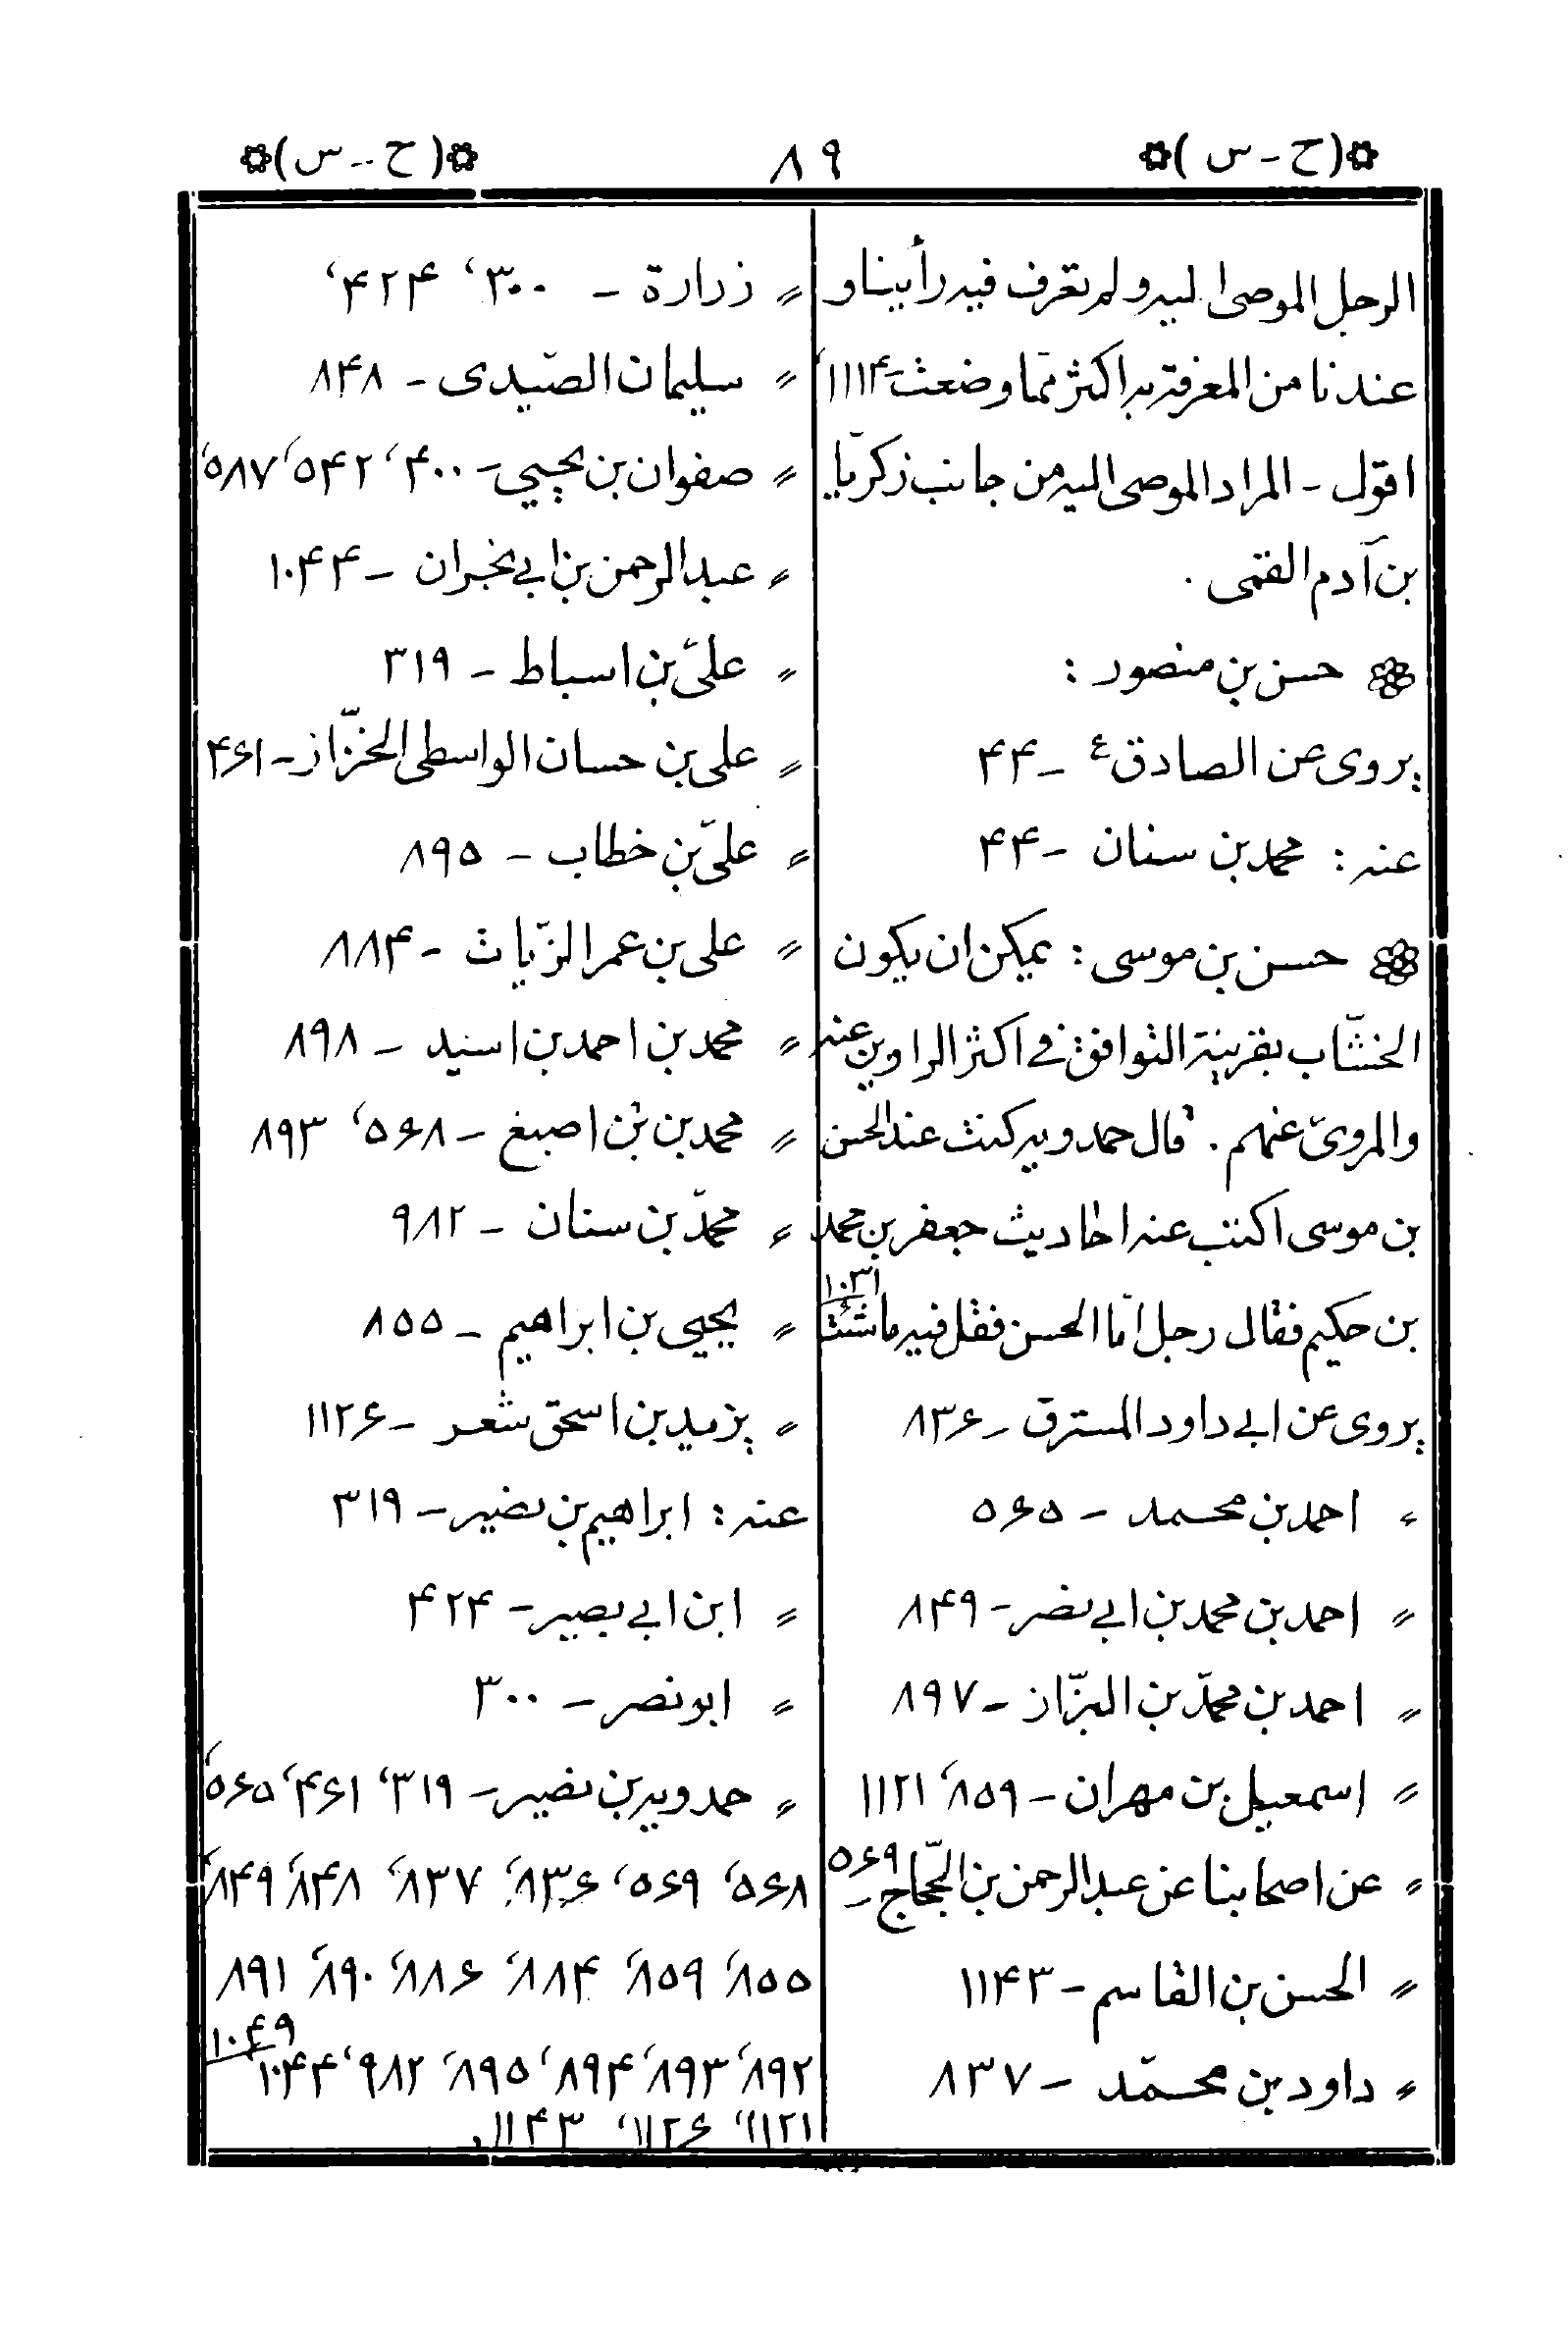 (ح - س)
۸۹
(ح - س)
الرجل الموصى اليه ولم تعرف فيه رأينا و
عندنا من المعرفة به اكثر ممّا وضعت - ۱۱۱۴،
اقول - المراد الموصى اليه من جانب زكريّا
بن آدم القمى .
حسن بن منصور :
يروى عن الصادق ع - ۴۴
عنه : محمد بن سنان - ۴۴
حسن بن موسى : يمكن ان يكون
الخشّاب بقرينة التوافق فى اكثر الراوين عنه
والمروىّ عنهم . قال حمدويه كنت عند الحسن
بن موسى اكتب عنه احاديث جعفر بن محمد
بن حكيم فقال رجل امّا الحسن فقل فيه ما شئت ۱۰۳۱
يروى عن ابى داود المسترق - ۸۳۶
〃 احمد بن محمد - ۵۶۵
〃 احمد بن محمد بن ابى نصر - ۸۴۹
〃 احمد بن محمّد بن البزّاز - ۸۹۷
〃 اسمعيل بن مهران - ۸۵۹، ۱۱۲۱
〃 عن اصحابنا عن عبد الرحمن بن الحجّاج - ۵۶۹
〃 الحسن بن القاسم - ۱۱۴۳
〃 داود بن محمّد - ۸۳۷
〃 زرارة - ۳۰۰، ۴۲۴،
〃 سليمان الصّيدى - ۸۴۸
〃 صفوان بن يحيى - ۴۰۰، ۵۴۲، ۵۸۷،
〃 عبد الرحمن بن ابى نجران - ۱۰۴۴
〃 علىّ بن اسباط - ۳۱۹
〃 على بن حسان الواسطى الخزّاز - ۴۶۱
〃 علىّ بن خطاب - ۸۹۵
〃 على بن عمر الزّيات - ۸۸۴
〃 محمد بن احمد بن اسيد - ۸۹۸
〃 محمد بن بن اصبغ - ۵۶۸، ۸۹۳
〃 محمّد بن سنان - ۹۸۲
〃 يحيى بن ابراهيم - ۸۵۵
〃 يزيد بن اسحق شعر - ۱۱۲۶
عنه : ابراهيم بن نصير - ۳۱۹
〃 ابن ابى بصير - ۴۲۴
〃 ابو نصر - ۳۰۰
〃 حمدويه بن نصير - ۳۱۹، ۴۶۱، ۵۶۵،
۵۶۸، ۵۶۹، ۸۳۶، ۸۳۷، ۸۴۸، ۸۴۹،
۸۵۵، ۸۵۹، ۸۸۴، ۸۸۶، ۸۹۰، ۸۹۱
۸۹۲، ۸۹۳، ۸۹۴، ۸۹۵، ۹۸۲، ۱۰۴۴ ۱۰۴۹
۱۱۲۱، ۱۱۲۶، ۱۱۴۳.